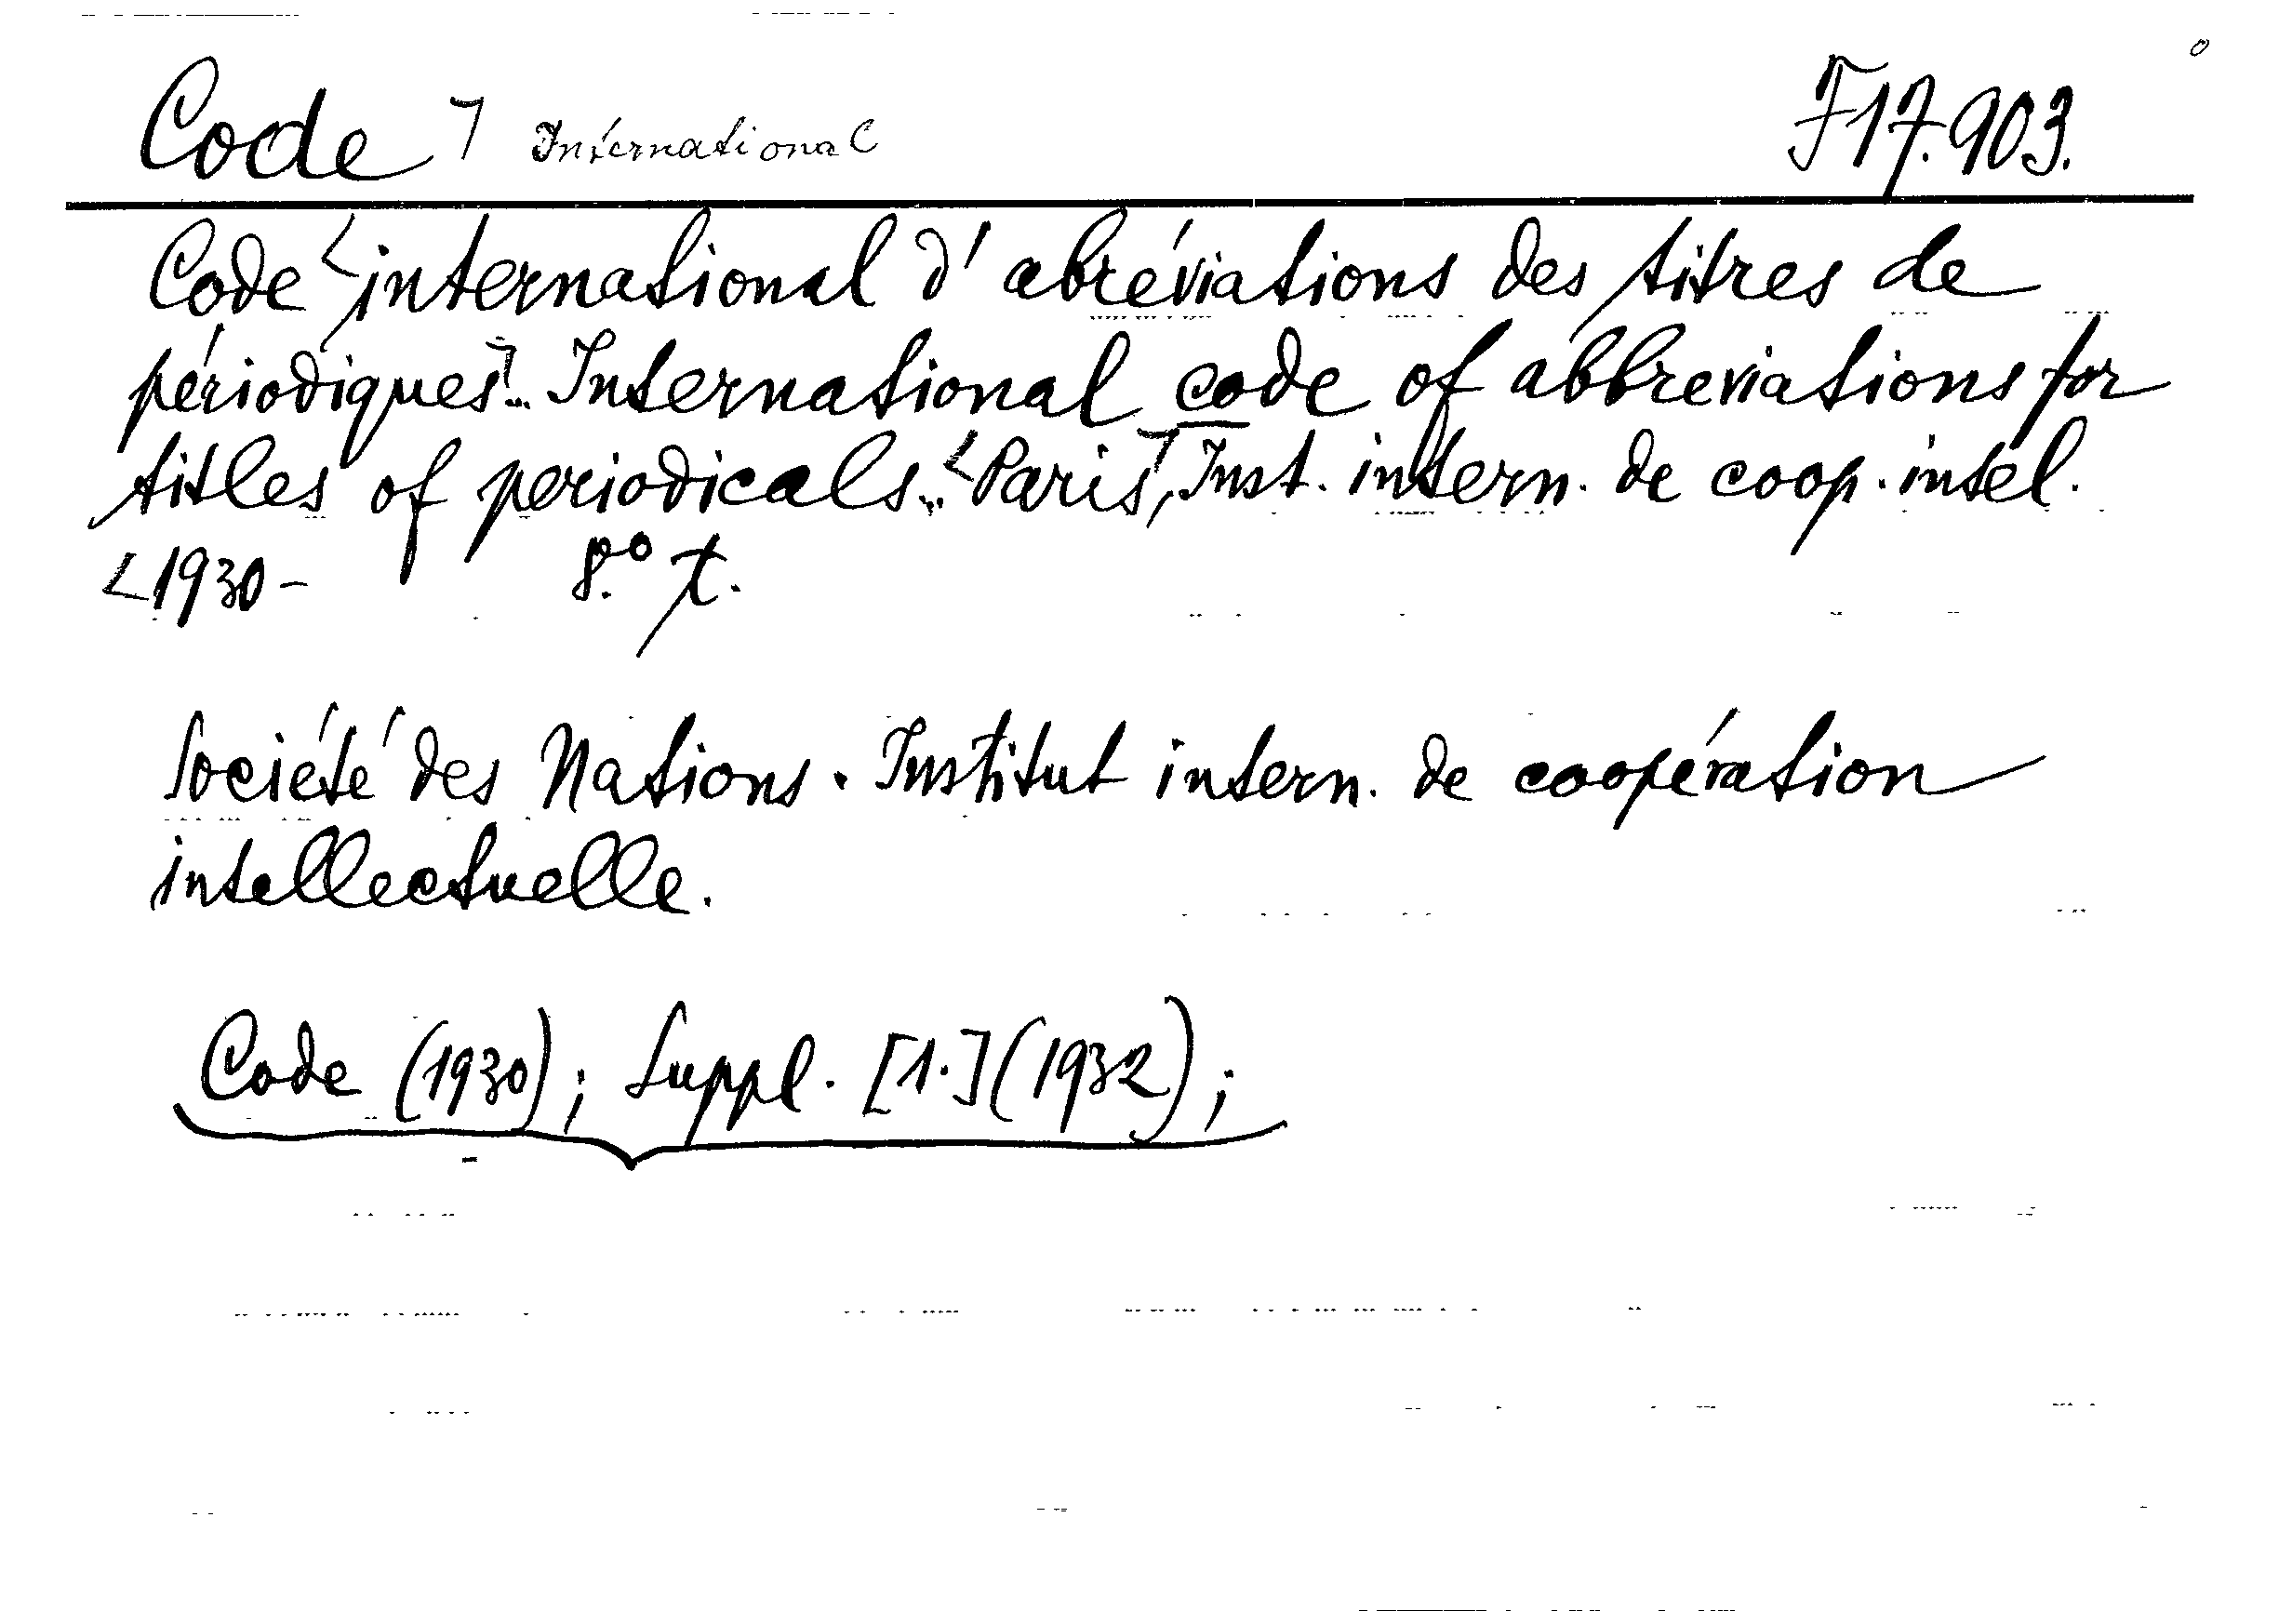 Code ⁊ International F 17.903.
Code <international d'abréviations des titres de
périodiques⁊... International code of abbreviations for
titles of periodicals... <Paris⁊, Inst. intern. de coop. intel.
<1930- 8.° t.
Société des Nations. Institut intern. de coopération
intellectuelle.
Code (1930); Suppl. [1.] (1932);